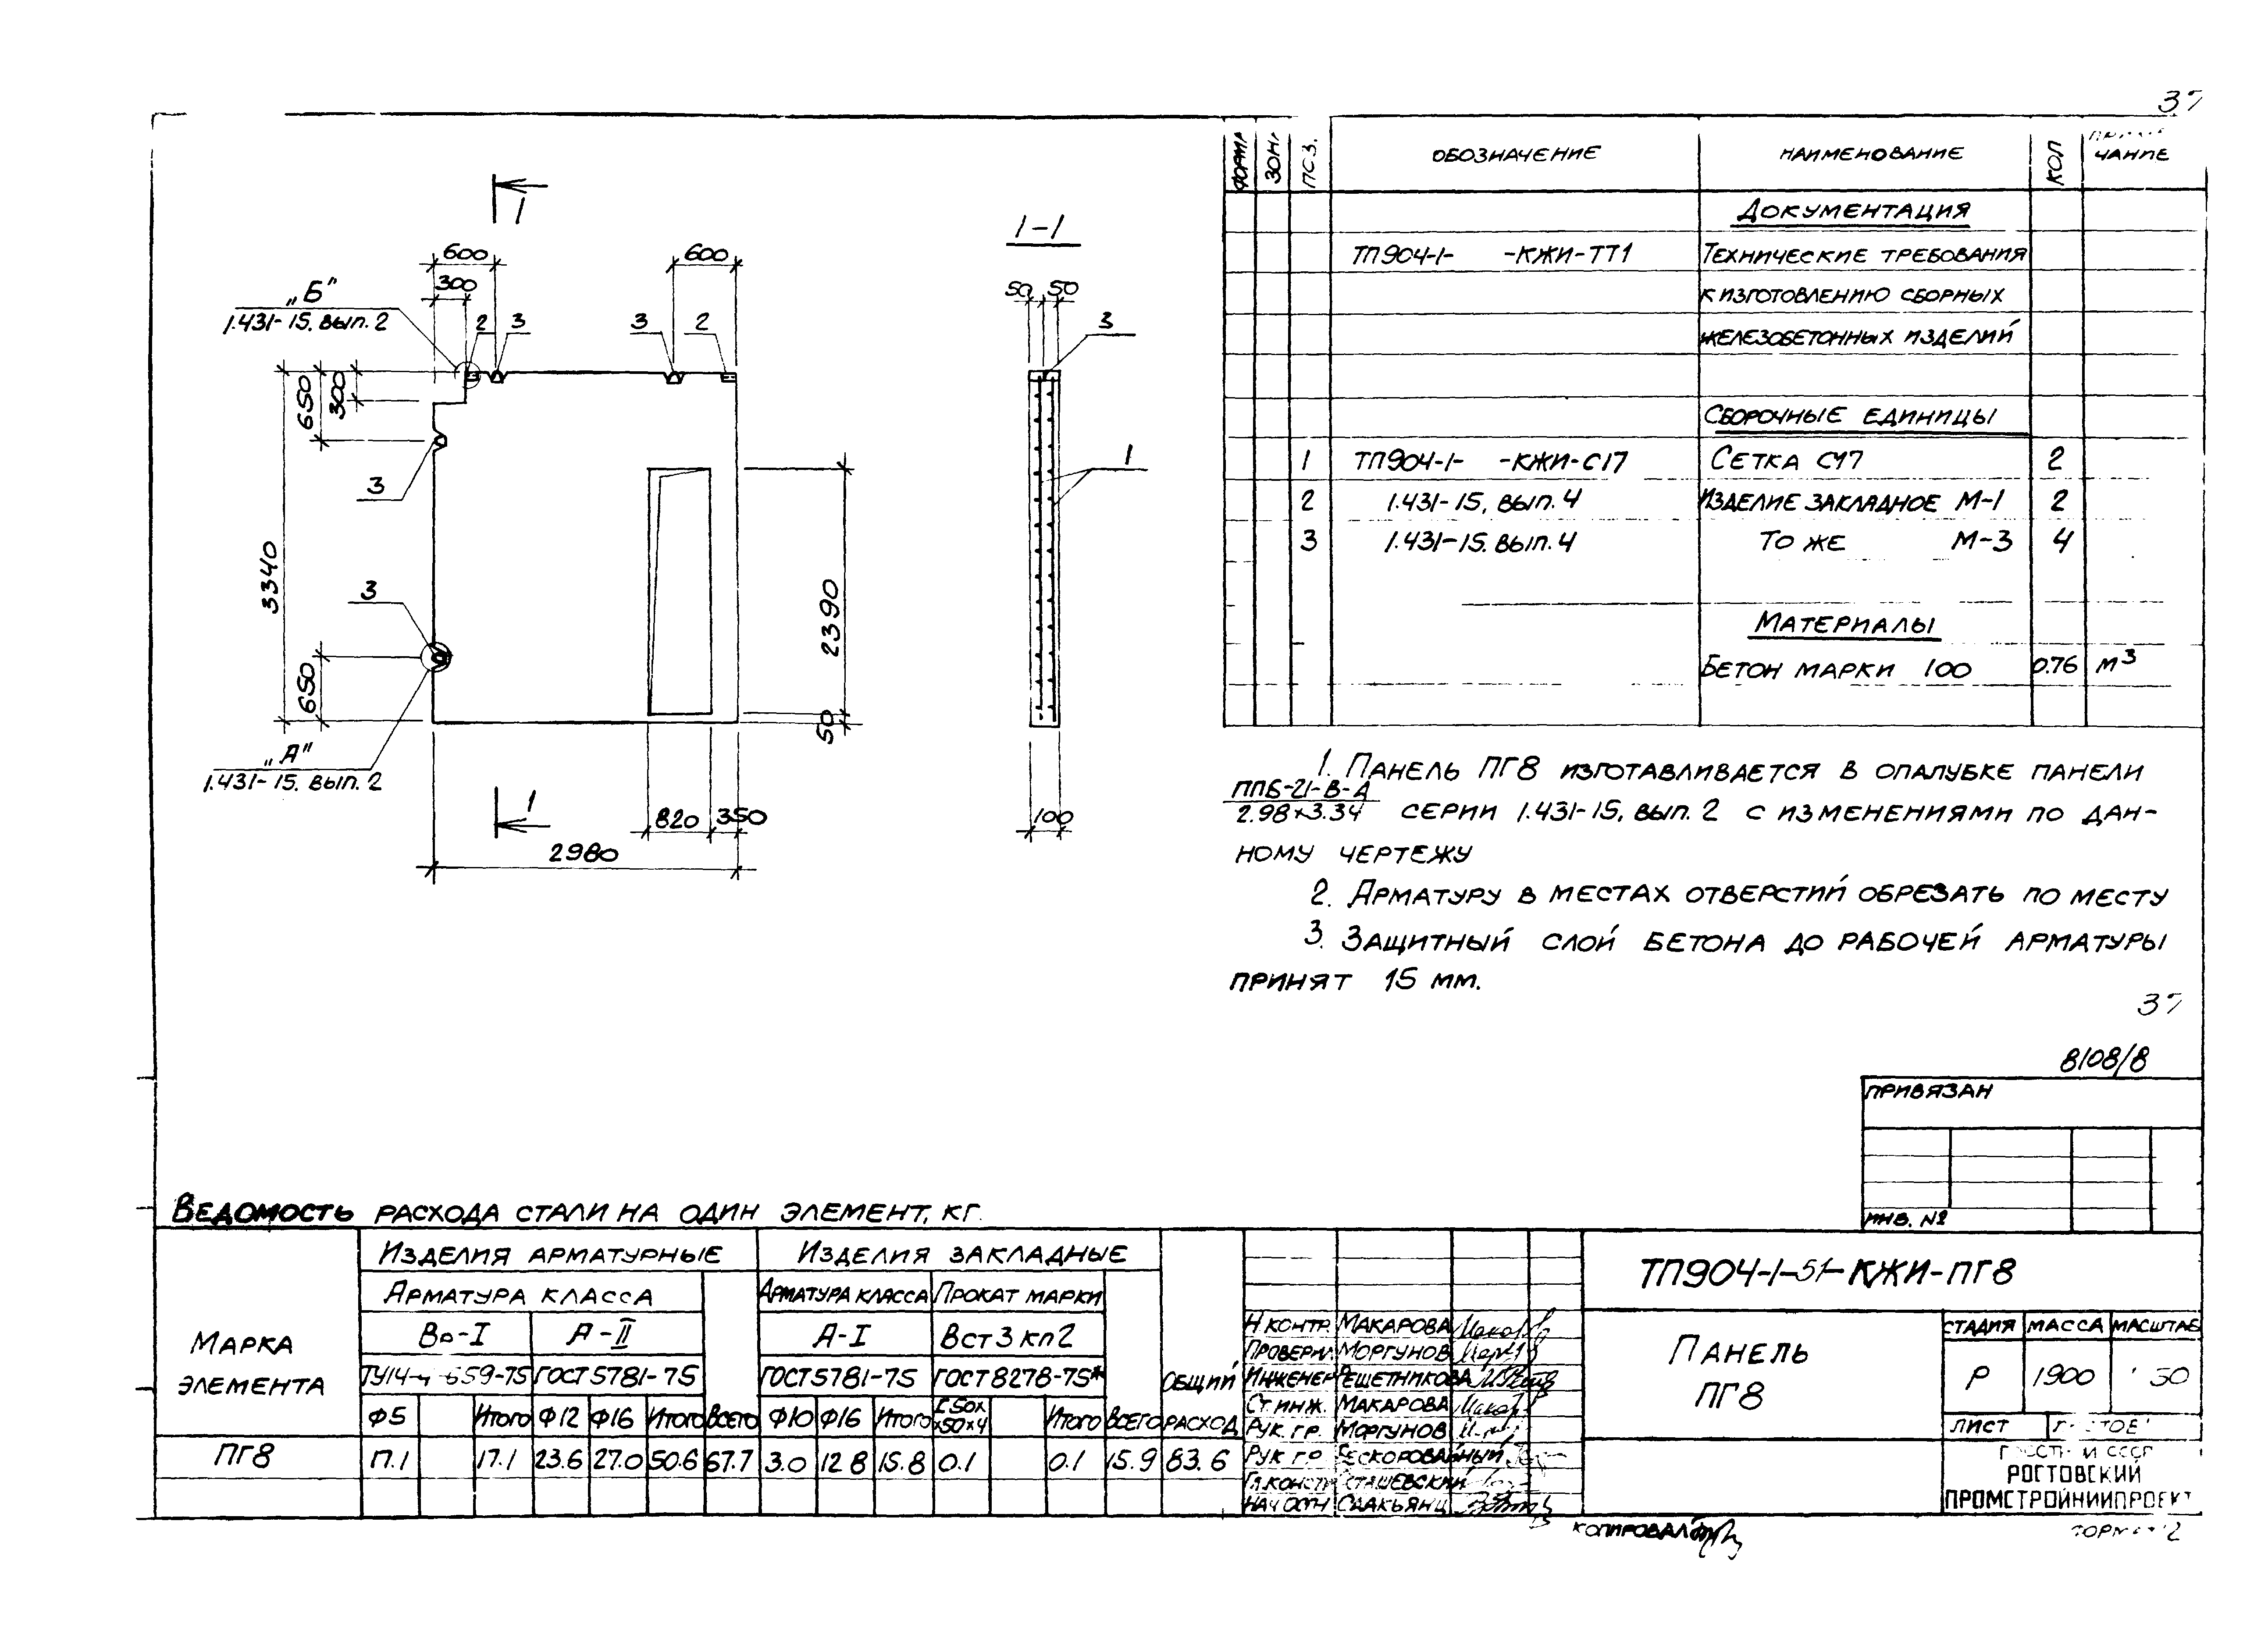 37
1
600
600
300
„Б"
1.431-15. вып. 2
2 3
3 2
650
300
3340
3
3
650
2390
50
„А"
1.431-15. вып. 2
1
820 350
2980
1-1
50 50
3
1
100
ПОЗ. ОБОЗНАЧЕНИЕ НАИМЕНОВАНИЕ КОЛ ЧАНИЕ
ДОКУМЕНТАЦИЯ
ТП904-1- -КЖИ-ТТ1 ТЕХНИЧЕСКИЕ ТРЕБОВАНИЯ
К ИЗГОТОВЛЕНИЮ СБОРНЫХ
ЖЕЛЕЗОБЕТОННЫХ ИЗДЕЛИЙ
СБОРОЧНЫЕ ЕДИНИЦЫ
1 ТП904-1- -КЖИ-С17 СЕТКА С17 2
2 1.431-15, вып. 4 ИЗДЕЛИЕ ЗАКЛАДНОЕ М-1 2
3 1.431-15. вып. 4 ТО ЖЕ М-3 4
МАТЕРИАЛЫ
БЕТОН МАРКИ 100 0.76 м3
1. ПАНЕЛЬ ПГ8 ИЗГОТАВЛИВАЕТСЯ В ОПАЛУБКЕ ПАНЕЛИ
ППБ-21-В-А
2.98×3.34 СЕРИИ 1.431-15, вып. 2 С ИЗМЕНЕНИЯМИ ПО ДАН-
НОМУ ЧЕРТЕЖУ
2. АРМАТУРУ В МЕСТАХ ОТВЕРСТИЙ ОБРЕЗАТЬ ПО МЕСТУ
3. ЗАЩИТНЫЙ СЛОЙ БЕТОНА ДО РАБОЧЕЙ АРМАТУРЫ
ПРИНЯТ 15 мм.
37
8108/8
ПРИВЯЗАН
ИНВ. №
ВЕДОМОСТЬ РАСХОДА СТАЛИ НА ОДИН ЭЛЕМЕНТ, КГ.
МАРКА ЭЛЕМЕНТА
ИЗДЕЛИЯ АРМАТУРНЫЕ ИЗДЕЛИЯ ЗАКЛАДНЫЕ
АРМАТУРА КЛАССА АРМАТУРА КЛАССА ПРОКАТ МАРКИ
Вр-I А-II А-I Вст3кп2
ГОСТ5781-75 ГОСТ5781-75 ГОСТ8278-75* ОБЩИЙ
Ф5 Итого Ф12 Ф16 Итого Всего Ф10 Ф16 Итого [50× ×50×4 Итого ВСЕГО РАСХОД
ПГ8 17.1 17.1 23.6 27.0 50.6 67.7 3.0 12.8 15.8 0.1 0.1 15.9 83.6
Н.КОНТР. МАКАРОВА
ПРОВЕРИЛ МОРГУНОВ
ИНЖЕНЕР РЕШЕТНИКОВА
СТ. ИНЖ. МАКАРОВА
РУК. ГР. МОРГУНОВ
РУК. ГР. БЕСКОРОВАЙНЫЙ
ГЛ.КОНСТР
ТП904-1-51-КЖИ-ПГ8
ПАНЕЛЬ
ПГ8
СТАДИЯ МАССА МАСШТАБ
Р 1900 50
ЛИСТ
РОСТОВСКИЙ
ПРОМСТРОЙНИИПРОЕКТ
КОПИРОВАЛ